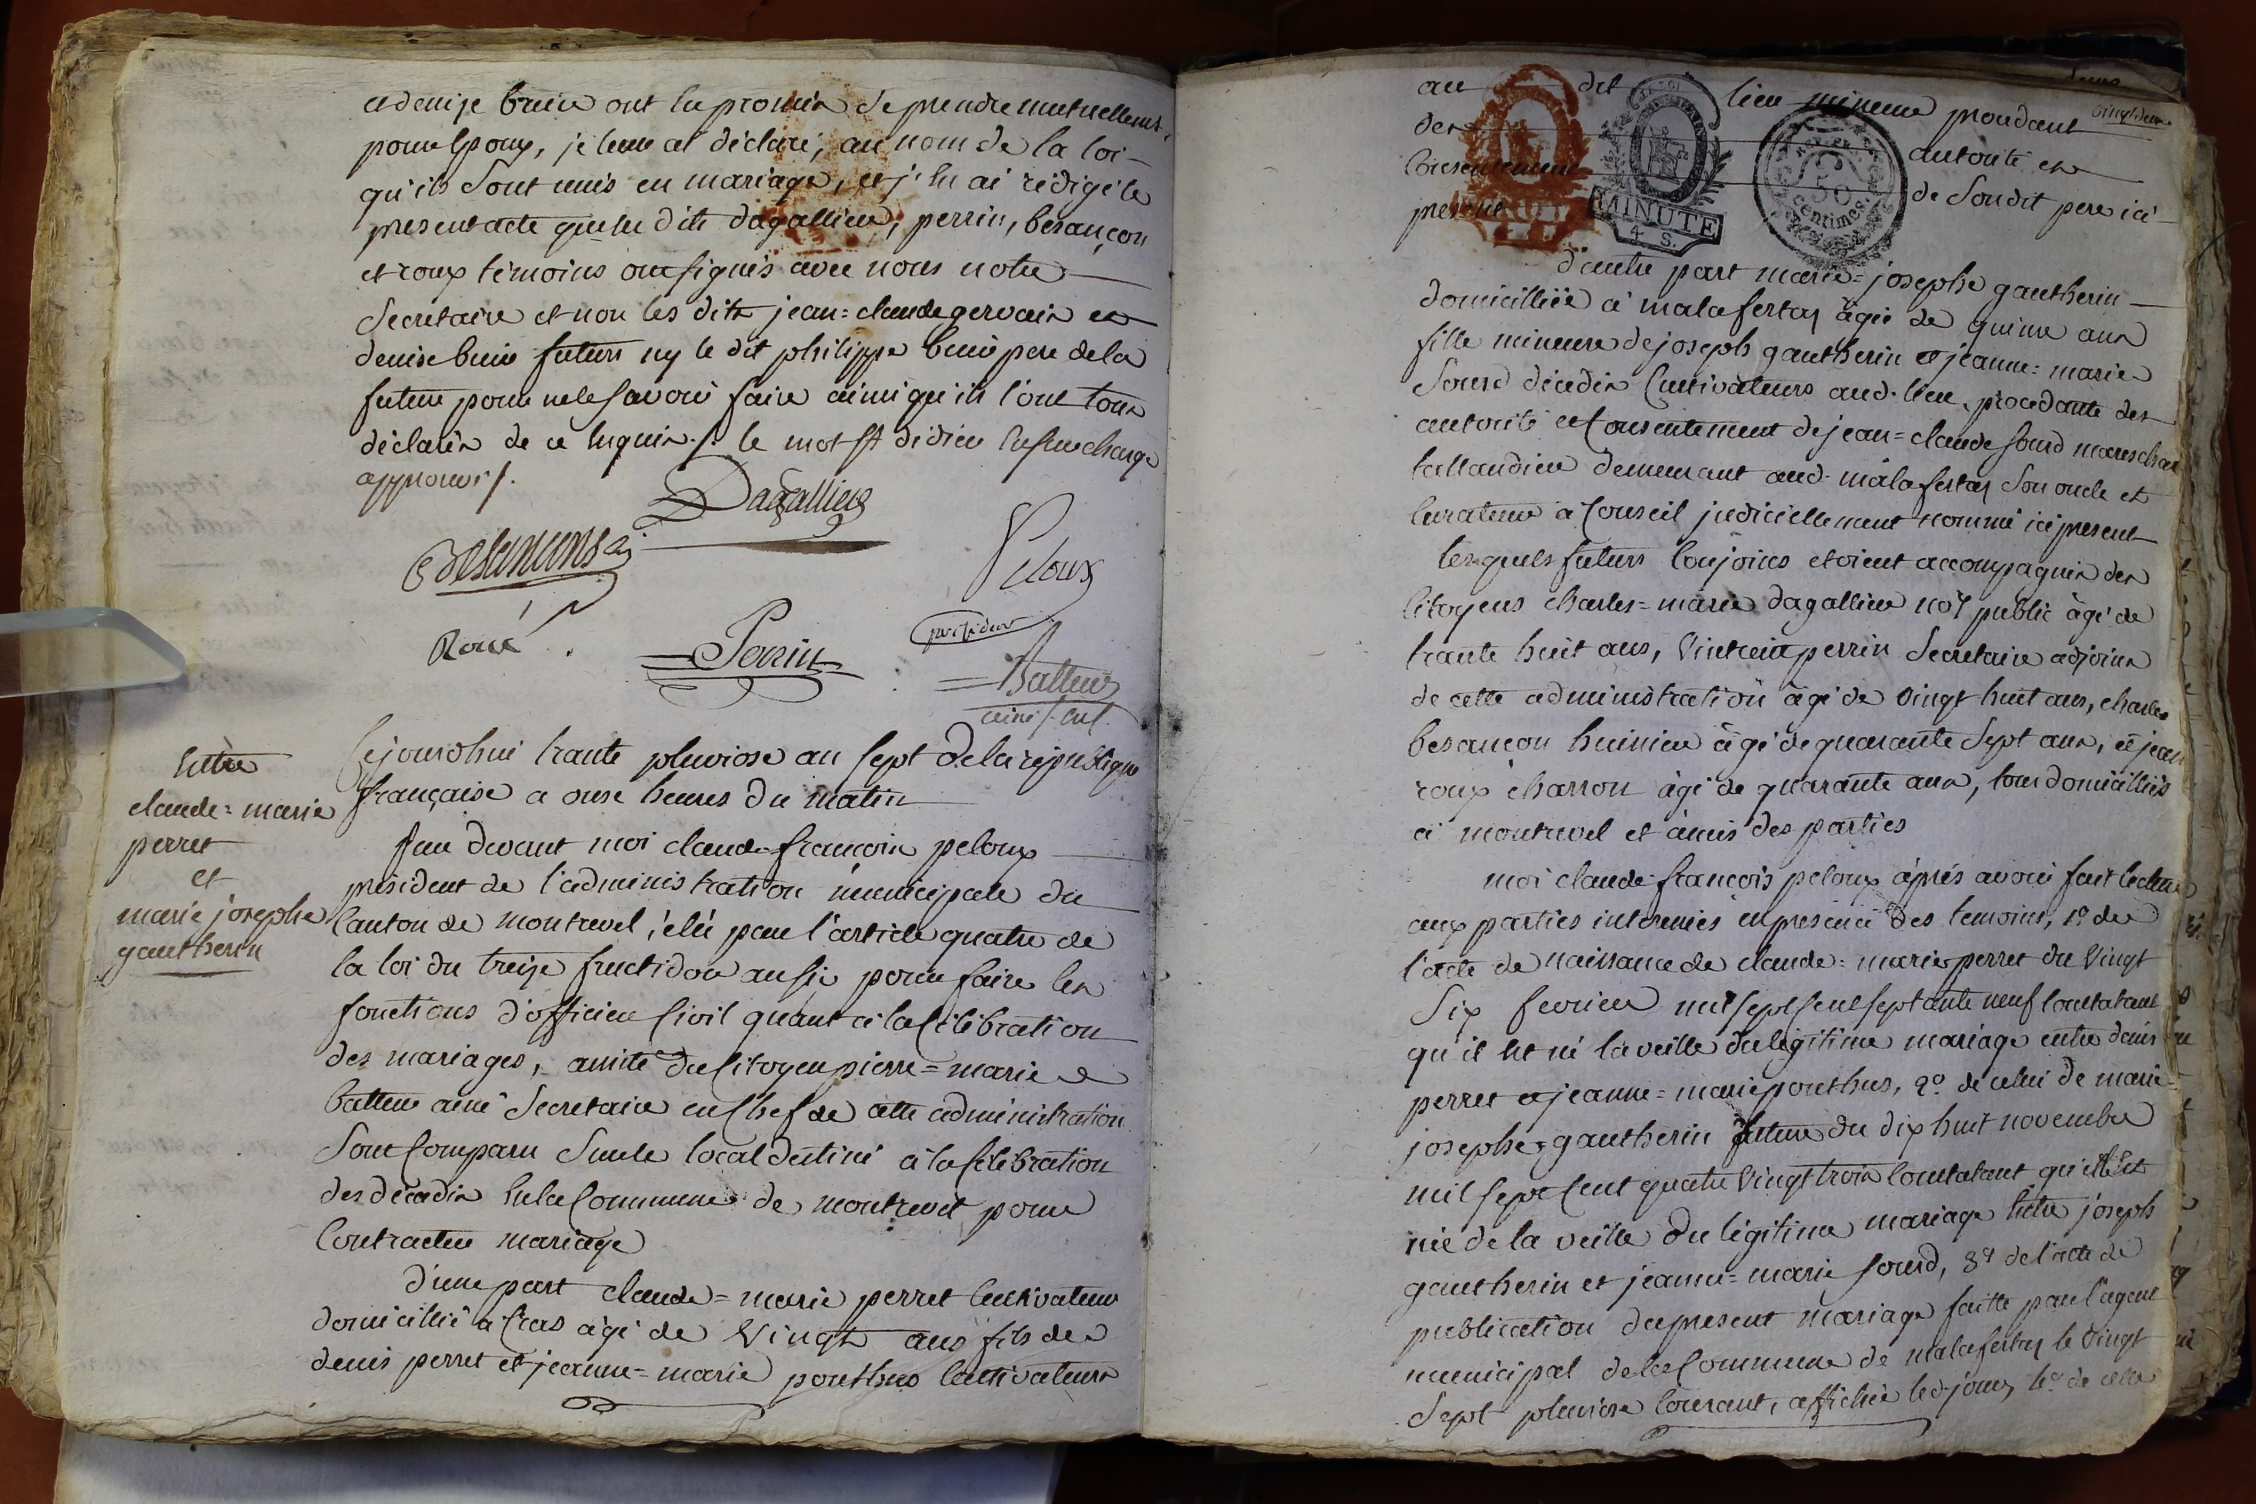 et denise buiré ont eu promis de prendre mutuellement
pour Epoux, je leur ai déclaré, au nom de la loi
qu'ils sont unis en mariage, et j'en ai rédigé le
present acte que les dits dagallier, perrin, besançon
et roux témoins ont signés avec nous notre
Secretaire et non les dits jean=claude gervain et
denise buiré futurs ny le dit philippe buiré pere de la
future pour ne le savoir faire ainsi qu'ils l'ont tous
déclarés de ce enquis ./. le mot
approuvé /.
Dagallier
Besançons
Peloux
president
Roux
Perrin
Batteur
ainé
Entre
claude=marie
perret
et
marie josephe
gautherin
Cejourdhui trante pluviose an sept de la république
française a onse heures du matin
par devant moi claude francois peloux
président de l'administration municipale du
Canton de montrevel, élu par l'article quatre de
la loi du treize fructidor an six pour faire les
fonctions d'officier Civil quant a la Célébration
des mariages, assisté du Citoyen pierre=marie
batteur ainé Secretaire en Chef de cette administration
Sont Comparu Sur le local destiné a la Célébration
des décadis en la Commune de montrevel pour
Contracter mariage
d'une part claude=marie perret Cultivateur
domicillié a Cras agé de Vingt ans fils de
denis perret et jeanne=marie pouthus Cultivateurs
vingt deux
au dit lieu mineur procédant
des autorité et
Consentement de Sondit pere ici
présent
MINUTE
4 S.
50
centimes.
d'autre part marie=josephe gautherin
domicilliée a malafertay agée de quinze ans
fille mineure de joseph gautherin et jeanne=marie
Sourd décédés Cultivateurs aud. lieu, procédante des
autorité et Consentement de jean=claude sourd mareschal
taillandier demeurant aud. malafertay son oncle et
Curateur a Conseil judiciellement nommé ici present
lesquels futurs Conjoints etoient accompagnés des
Citoyens charles=marie dagallier no.re public agé de
trante huit ans, Vincent perrin Secretaire adjoint
de cette administration agé de vingt huit ans, charles
besançon huissier agé de quarante Sept ans, et jean
roux charron agé de quarante ans, tous domicilliés
a montrevel et amis des parties
moi claude francois peloux après avoir fait lecture
aux parties intéressées en presence des temoins, 1.o de
l'acte de naissance de claude=marie perret du Vingt
Six fevrier mil sept Cent septante neuf Constatant
qu'il est né la veille du legitime mariage entre denis
perret et jeanne=marie pouthus, 2.o de celui de marie
josephe gautherin future du dix huit novembre
mil sept Cent quatre Vingt trois Constatant qu'elle est
née de la veille du légitime mariage entre joseph
gautherin et jeanne=marie sourd, 3.o de l'acte de
publication du present mariage faitte par l'agent
municipal de la Commune de malafertay le vingt
Sept pluviose Courant, affichée led. jour, 4.o de celle